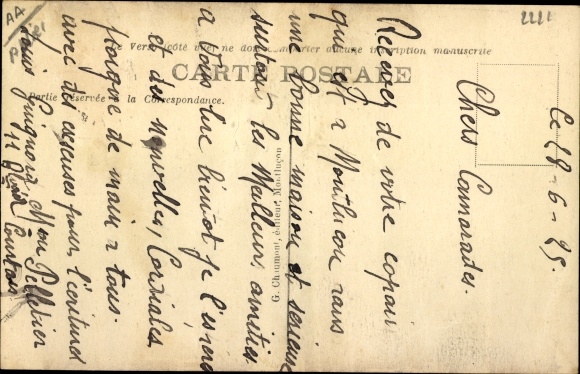 AA
1111
Le Verso (côté vue) ne doit comporter aucune inscription manuscrite
CARTE POSTALE
Partie réservée à la Correspondance.
G. Chaumont, éditeur, Montluçon
Le 18-6-25.
Chers Camarades.
Recevez de votre copain
qui est à Montlucon dans
une bonne maison et serieuse
surtout les Meilleurs amities
a tous lire bientot je l'espere
et des nouvelles, Cordiales
poigne de main a tous.
avec des excuses pour l'ecriture
Louis chez Mon Pelletier
11 Blvd Courtais